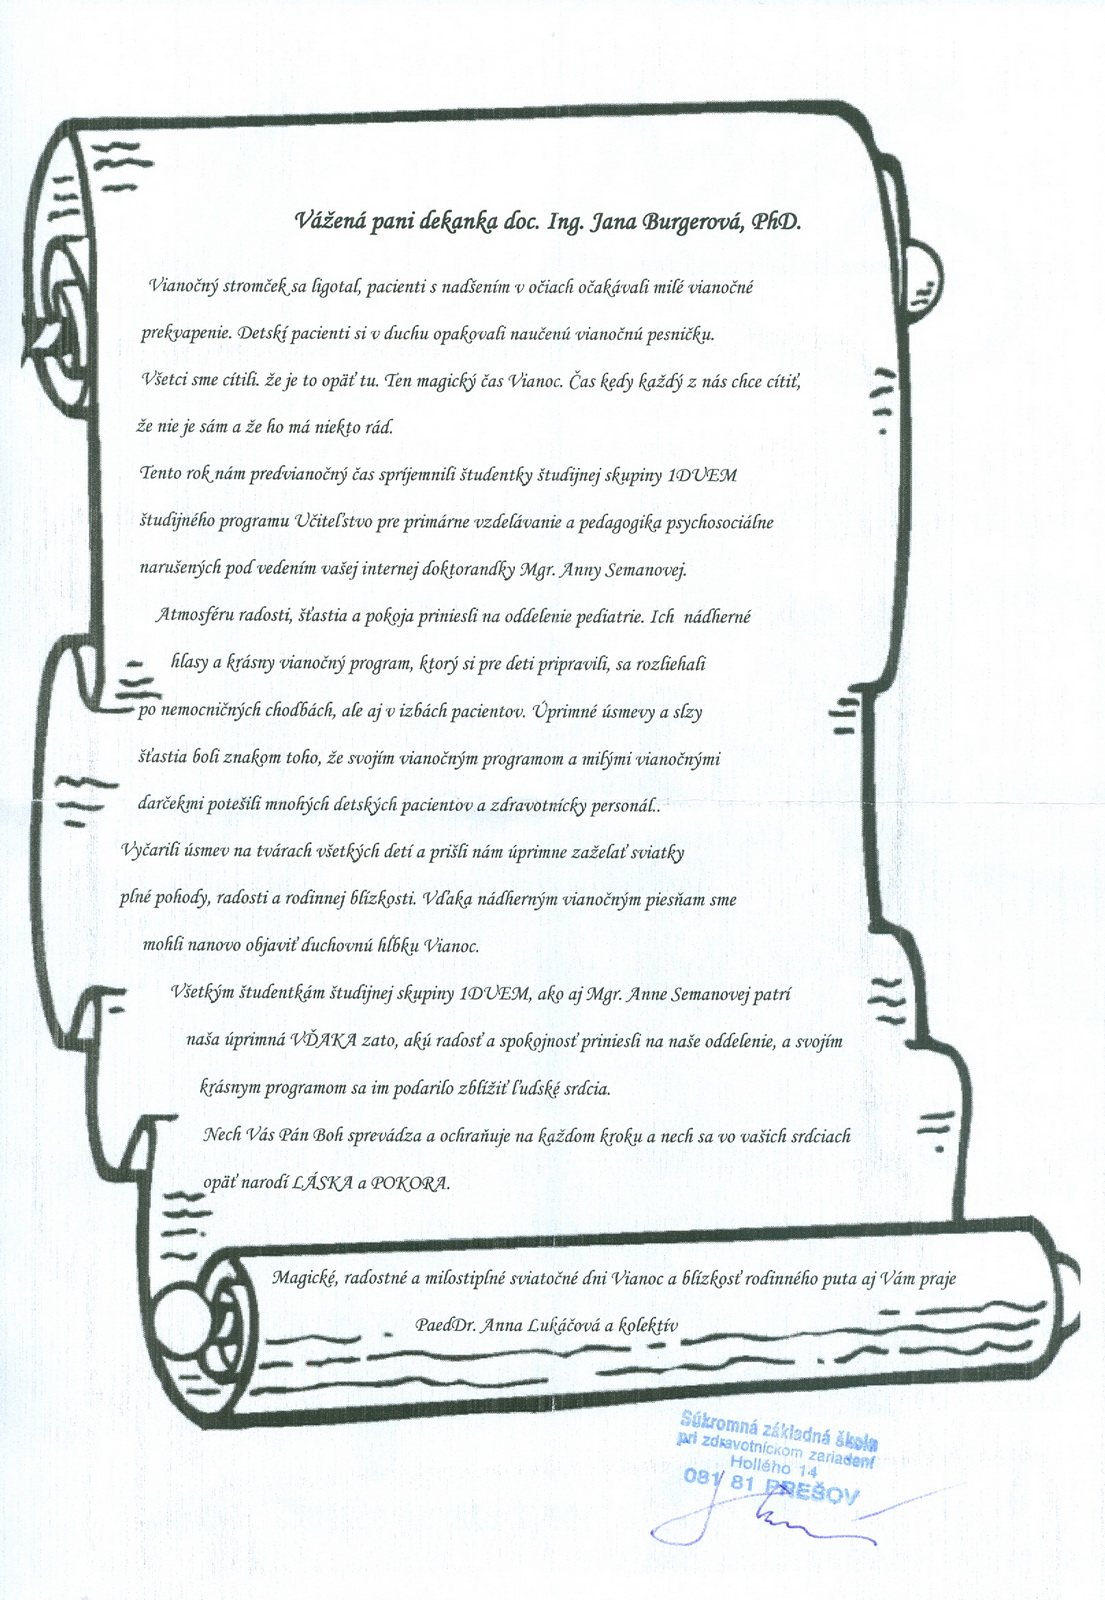 Vážená pani dekanka doc. Ing. Jana Burgerová, PhD.
Vianočný stromček sa ligotal, pacienti s nadšením v očiach očakávali milé vianočné
prekvapenie. Detskí pacienti si v duchu opakovali naučenú vianočnú pesničku.
Všetci sme cítili. že je to opäť tu. Ten magický čas Vianoc. Čas kedy každý z nás chce cítiť,
že nie je sám a že ho má niekto rád.
Tento rok nám predvianočný čas spríjemnili študentky študijnej skupiny 1DUEM
študijného programu Učiteľstvo pre primárne vzdelávanie a pedagogika psychosociálne
narušených pod vedením vašej internej doktorandky Mgr. Anny Semanovej.
Atmosféru radosti, šťastia a pokoja priniesli na oddelenie pediatrie. Ich nádherné
hlasy a krásny vianočný program, ktorý si pre deti pripravili, sa rozliehali
po nemocničných chodbách, ale aj v izbách pacientov. Úprimné úsmevy a slzy
šťastia boli znakom toho, že svojím vianočným programom a milými vianočnými
darčekmi potešili mnohých detských pacientov a zdravotnícky personál..
Vyčarili úsmev na tvárach všetkých detí a prišli nám úprimne zaželať sviatky
plné pohody, radosti a rodinnej blízkosti. Vďaka nádherným vianočným piesňam sme
mohli nanovo objaviť duchovnú hĺbku Vianoc.
Všetkým študentkám študijnej skupiny 1DUEM, ako aj Mgr. Anne Semanovej patrí
naša úprimná VĎAKA zato, akú radosť a spokojnosť priniesli na naše oddelenie, a svojím
krásnym programom sa im podarilo zblížiť ľudské srdcia.
Nech Vás Pán Boh sprevádza a ochraňuje na každom kroku a nech sa vo vašich srdciach
opäť narodí LÁSKA a POKORA.
Magické, radostné a milostiplné sviatočné dni Vianoc a blízkosť rodinného puta aj Vám praje
PaedDr. Anna Lukáčová a kolektív
Súkromná základná škola
pri zdravotníckom zariadení
Hollého 14
081 81 PREŠOV